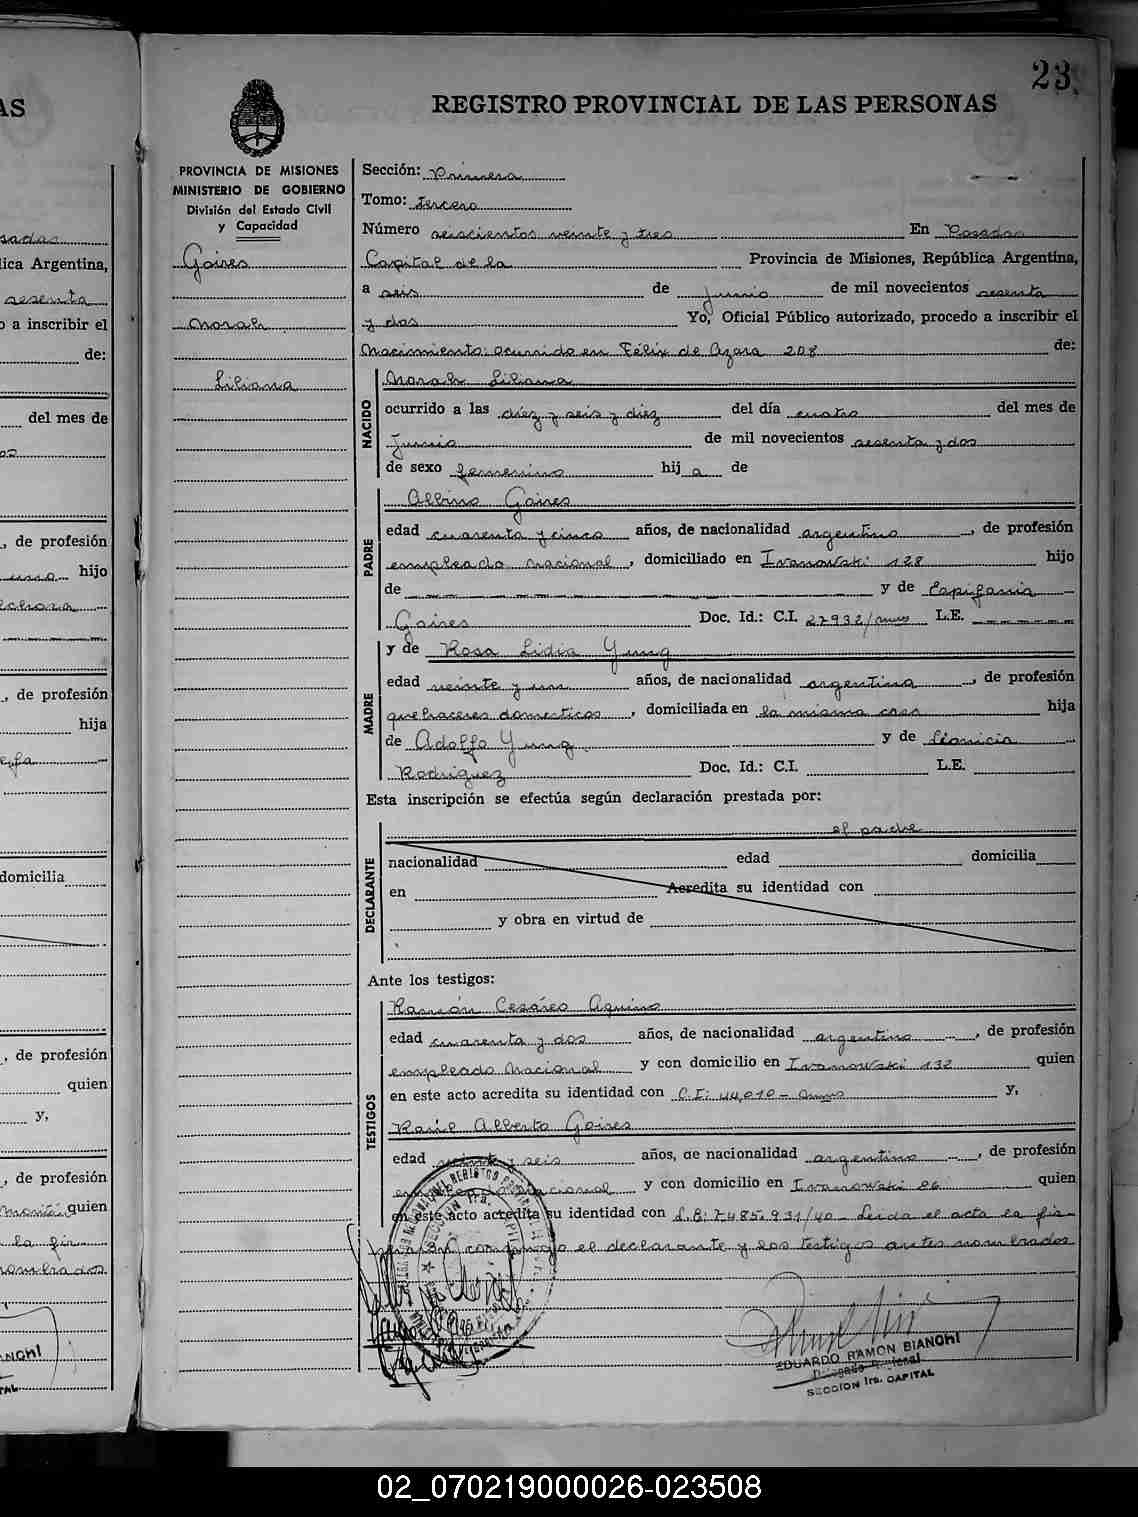 23
REGISTRO PROVINCIAL DE LAS PERSONAS
PROVINCIA DE MISIONES
MINISTERIO DE GOBIERNO
División del Estado Civil
y Capacidad
Goires
Norah
Liliana
Sección: Primera
Tomo: Tercero
Número seiscientos veinte y tres En Posadas
Capital de la Provincia de Misiones, República Argentina,
a seis de Junio de mil novecientos sesenta
y dos Yo, Oficial Público autorizado, procedo a inscribir el
Nacimiento: ocurrido en Félix de Azara 208 de:
NACIDO
Norah Liliana
ocurrido a las diez y seis y diez del día cuatro del mes de
Junio de mil novecientos sesenta y dos
de sexo femenino hij a de
PADRE
Albino Goires
edad cuarenta y cinco años, de nacionalidad argentino, de profesión
empleado nacional, domiciliado en Ivanowski 128 hijo
de y de Epifania
Goires Doc. Id.: C.I. 27932/mnes L.E.
MADRE
y de Rosa Lidia Yung
edad veinte y un años, de nacionalidad argentina, de profesión
quehaceres domesticos, domiciliada en la misma casa hija
de Adolfo Yung y de Leonicia
Rodriguez Doc. Id.: C.I. L.E.
Esta inscripción se efectúa según declaración prestada por:
el padre
DECLARANTE
nacionalidad edad domicilia
en Acredita su identidad con
y obra en virtud de
Ante los testigos:
TESTIGOS
Ramón Cesáreo Aquino
edad cuarenta y dos años, de nacionalidad argentino, de profesión
empleado nacional y con domicilio en Ivanowski 132 quien
en este acto acredita su identidad con C.I: 44.010- y,
Raúl Alberto Goires
edad veinte y seis años, de nacionalidad argentino, de profesión
empleado nacional y con domicilio en Ivanowski 86 quien
en este acto acredita su identidad con L.B: 7.485.931/40- Leida el acta la fir-
man conmigo el declarante y los testigos antes nombrados
EDUARDO RAMON BIANCHI
Delegado Regional
SECCION 1ra. CAPITAL
02_070219000026-023508